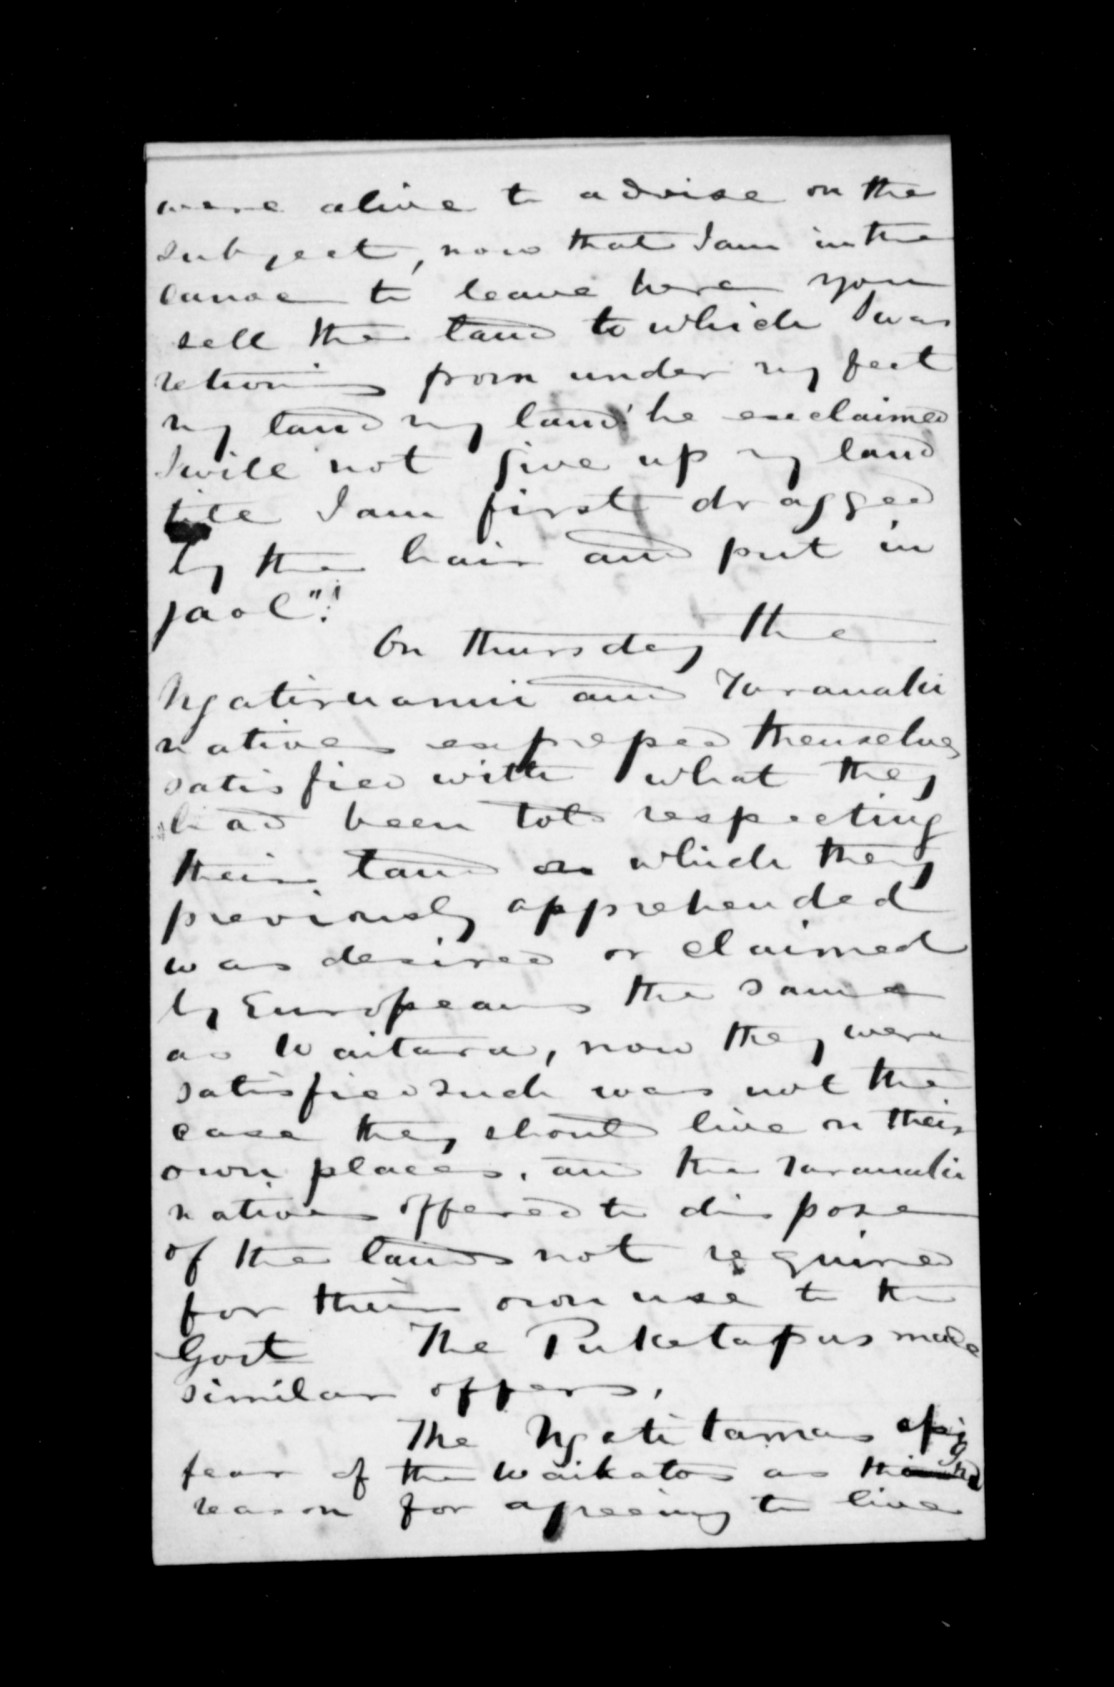 were alive to advise on the
subject, now that I am in the
canoe to leave here you
sell the land to which I was
returning from under my feet
my land my land' he exclaimed
I will not give up my land
till I am first dragged
by the hair and put in
jaol"!
On thursday the
Ngatiruanui and Taranaki
natives expressed themselves
satisfied with what they
had been told respecting
their land which they
previously apprehended
was desired or claimed
by Europeans the same
as Waitara, now they were
satisfied such was not the
case they should live on their
own places, and the Taranaki
natives offered to dispose
of the lands not required
for their own use to the
Govt The Puketapus made
similar offers,
The Ngatitamas assigned
fear of the Waikatos as the
reason for agreeing to live